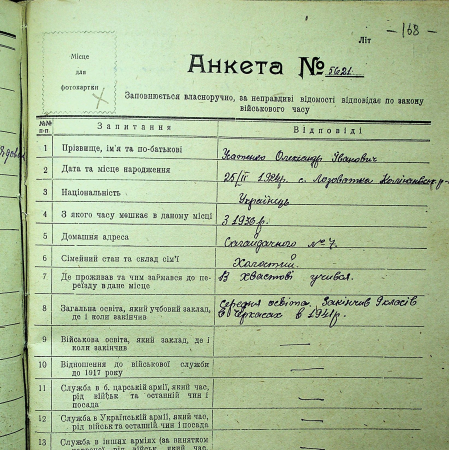 Літ
-168-
Місце
для
фотокартки
Анкета № 5621
Заповнюється власноручно, за неправдиві відомості відповідає по закону
військового часу
№№ п-п Запитання Відповіді
1 Прізвище, ім'я та по-батькові Олександр Іванович
2 Дата та місце народження 25/II с. Лозоватка
3 Національність Українець
4 З якого часу мешкає в даному місці З
5 Домашня адреса Сагайдачного № 7.
6 Сімейний стан та склад сім'ї Холостий.
7 Де проживав та чим займався до пе-
реїзду в дане місце В Хвастові учився.
8 Загальна освіта, який учбовий заклад,
де і коли закінчив Середня освіта, закінчив 9 класів
в Черкасах в 1941 р.
9 Військова освіта, який заклад, де і
коли закінчив —
10 Відношення до військової служби
до 1917 року —
11 Служба в б. царській армії, який час,
рід військ та останній чин і
посада —
12 Служба в Українській армії, який час,
рід військ та останній чин і посада —
13 Служба в інших арміях (за винятком